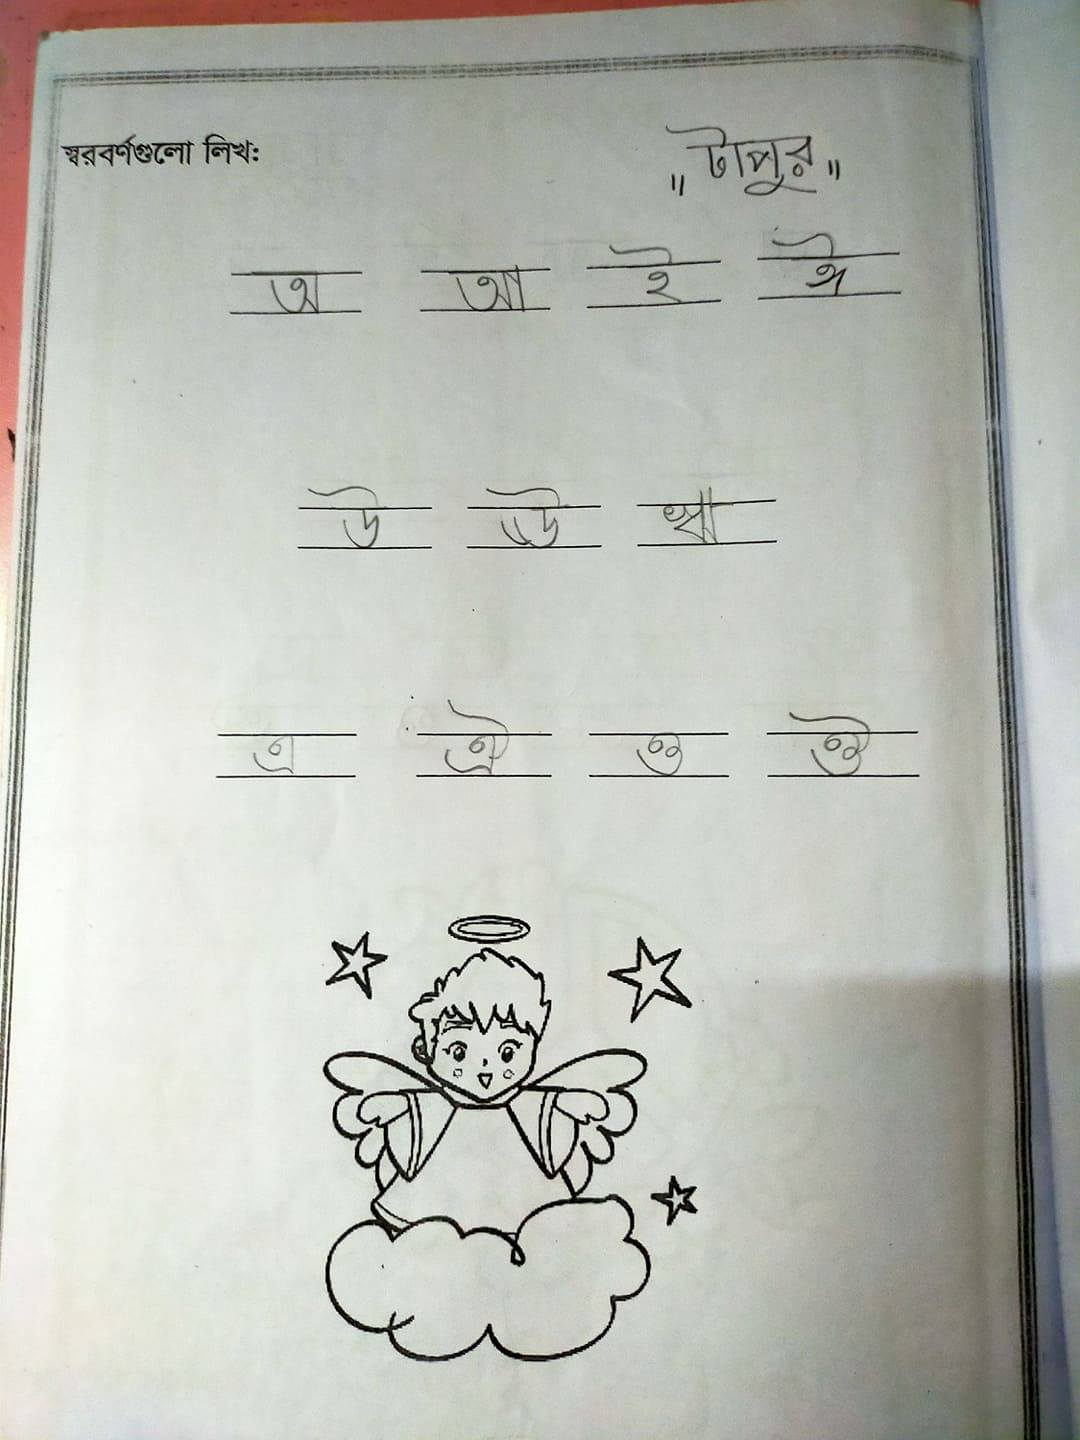 স্বরবর্ণগুলো লিখ:
"টাপুর"
অ আ ই ঈ
উ ঊ ঋ
এ ঐ ও ঔ